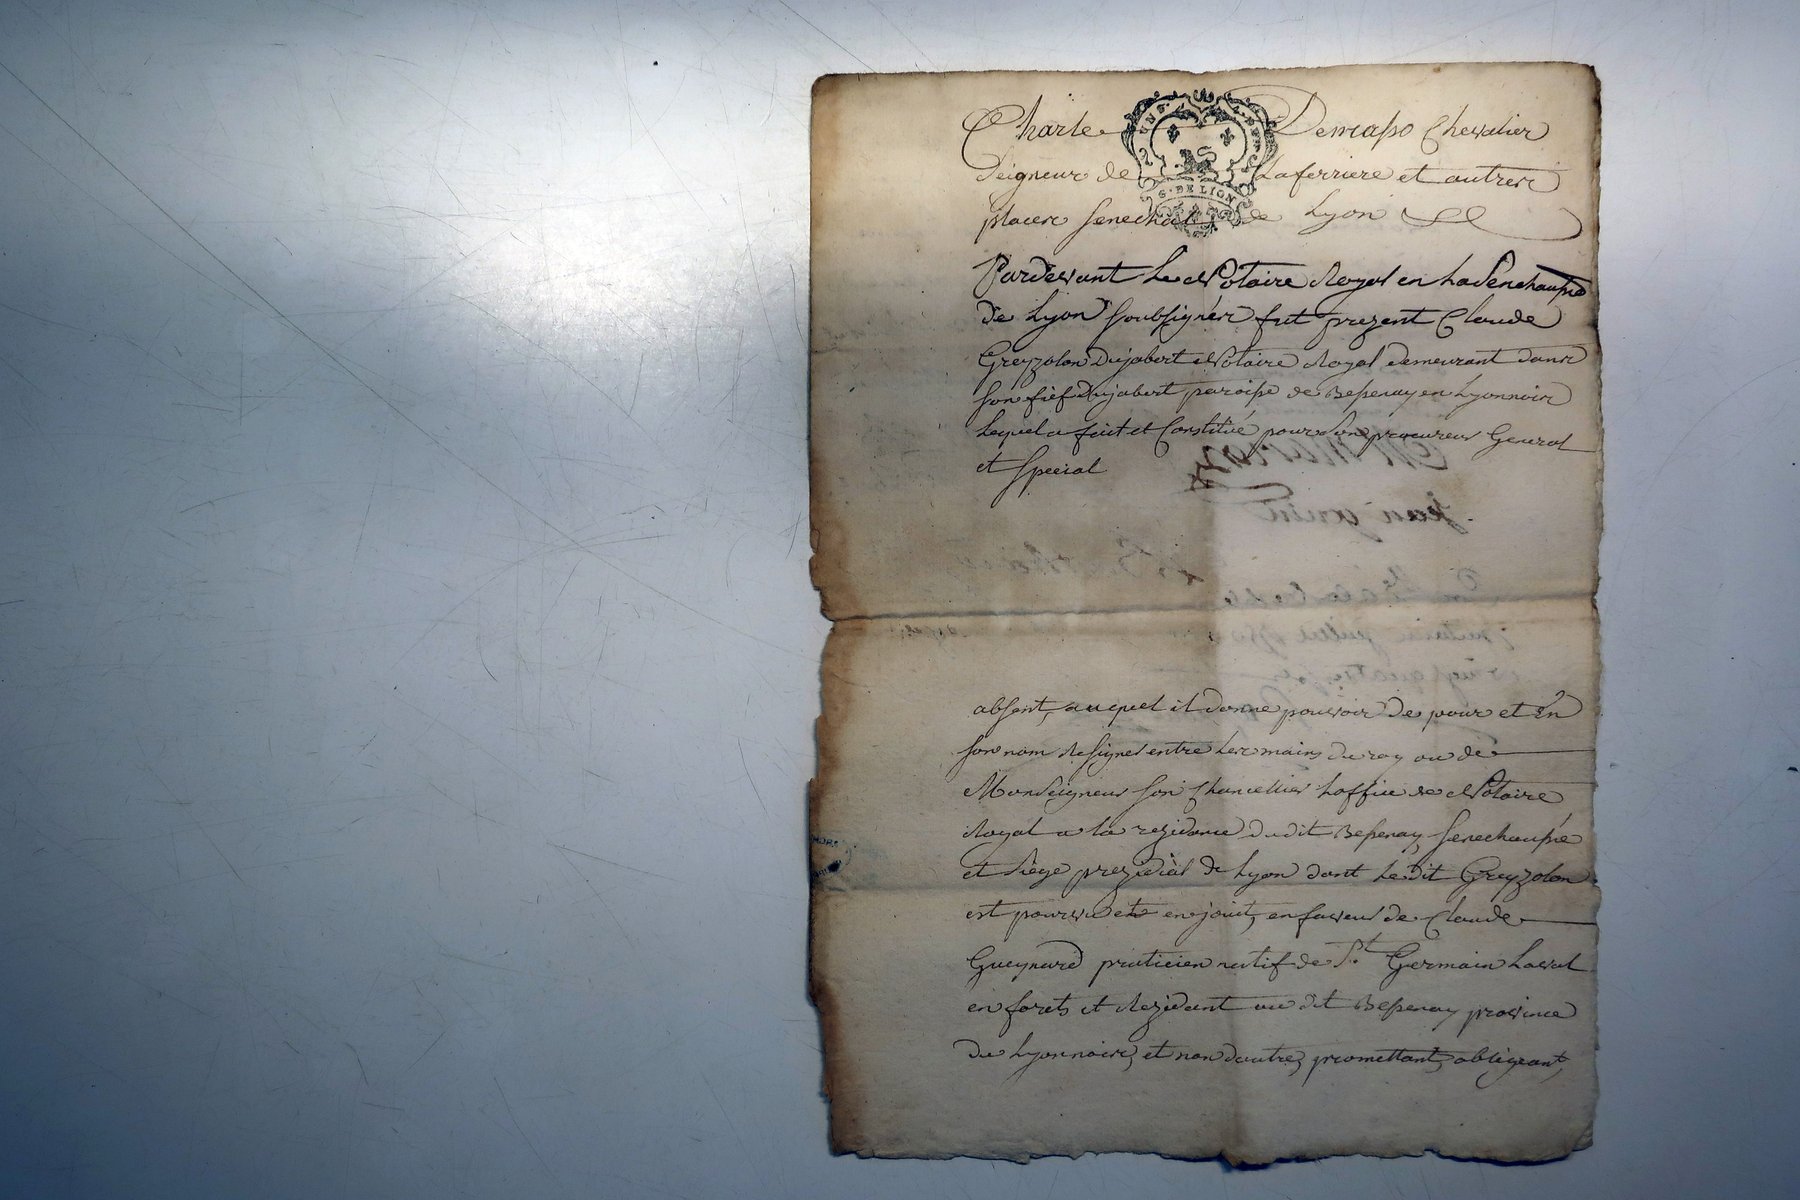 Charle Demaso Chevalier
Seigneur de Laferriere et autres
places Senechal de Lyon
G. DE LION
Pardevant Le Notaire Royal en La Senechaussée
de Lyon Soubsignés fut prezent Claude
Greyzolon Dujabert Notaire Royal demeurant dans
Son fief Dujabert, paroisse de Bessenay en Lyonnois
Lequel a fait et Constitué pour Son procureur General
et Special
absent, auquel il donne pouvoir De pour et En
Son nom Resigner entre Les mains du roy ou de
Monseigneur Son Chancellier Loffice de Notaire
Royal a la rezidance dudit Bessenay, Senechaussée
et Siege prezidial de Lyon dont Le dit Greyzolon
est pourvu et en jouit, en faveur de Claude
Gueynard praticien natif de St. Germain Laval
en forets et Rezidant au dit Bessenay province
du Lyonnois, et non dautre, promettant, obligeant,